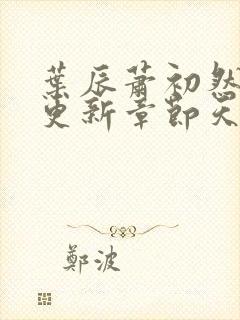 葉辰蕭初然
更新章節天
鄭波